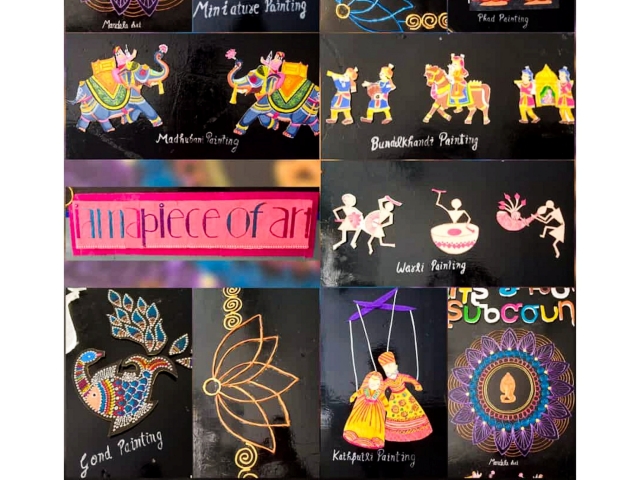 Mandala Art
Miniature Painting
Phad Painting
Madhubani Painting
Bundelkhandi Painting
i am a piece of art
Warli Painting
SUBCOUN
Gond Painting
Kathputli Painting
Mandala Art